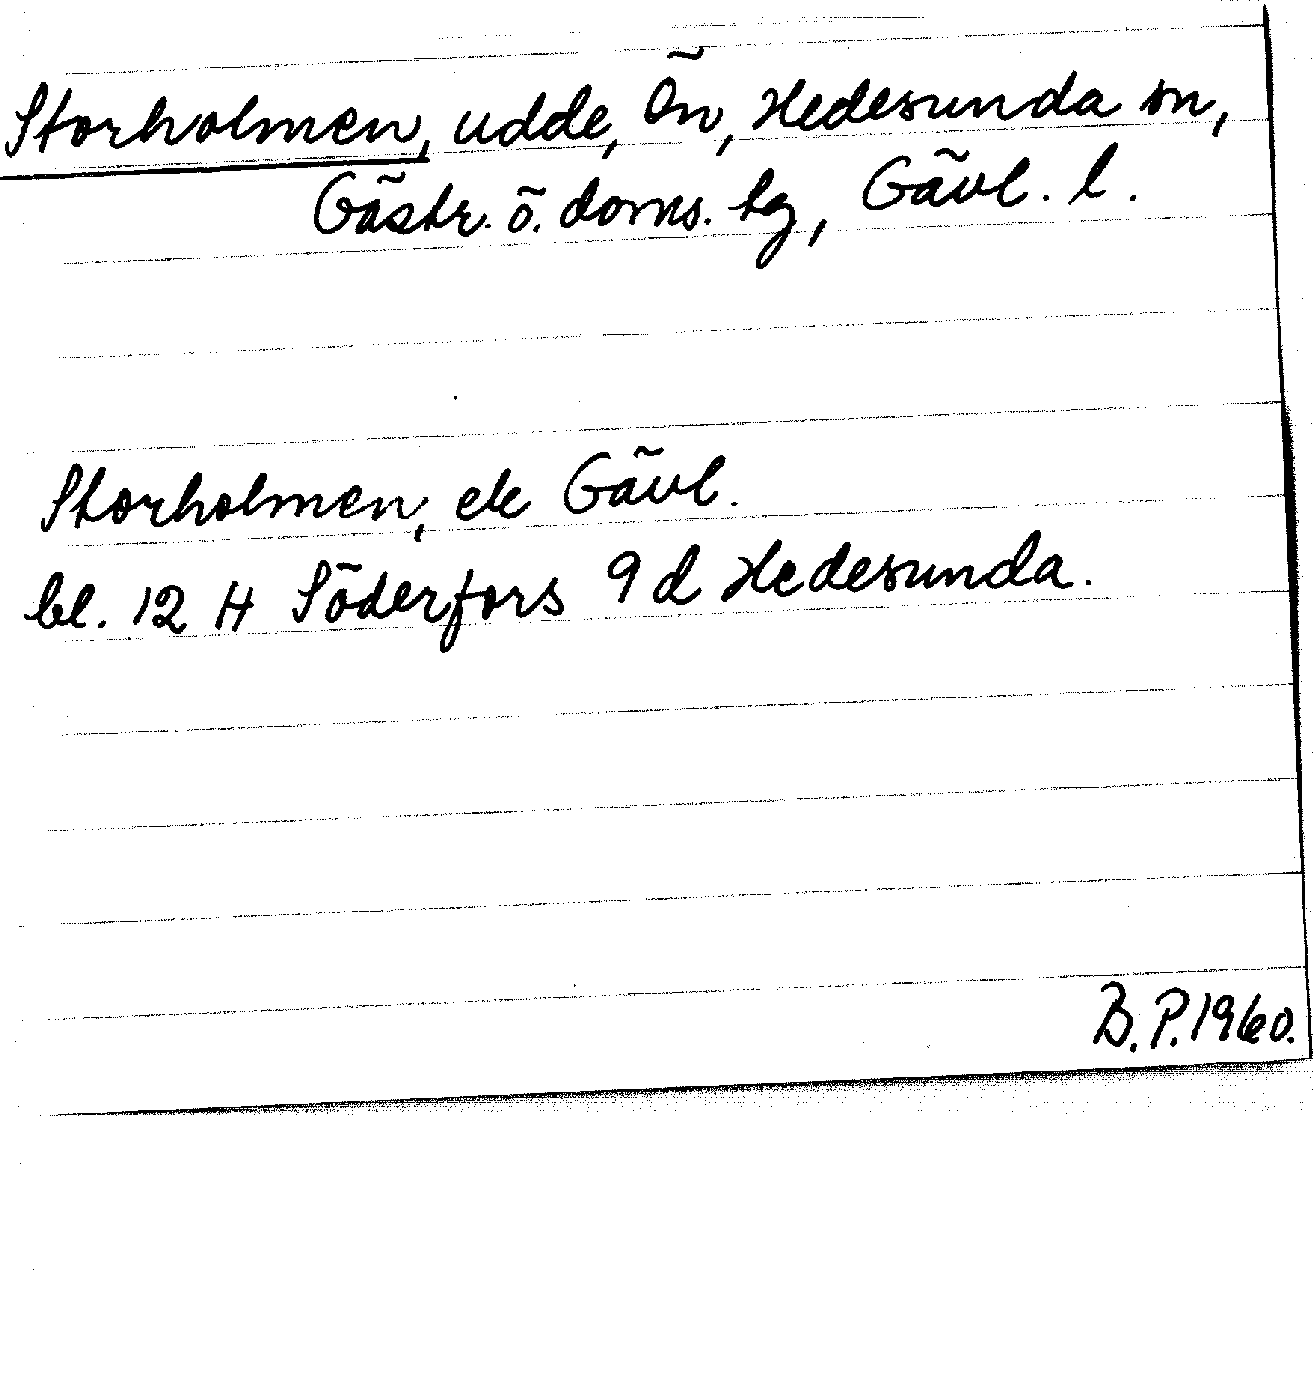 Storholmen, udde, Ön, Hedesunda sn,
Gästr. ö. doms. tg, Gävl. l.
Storholmen, ek Gävl.
bl. 12 H Söderfors 9 d Hedesunda.
B. P. 1960.